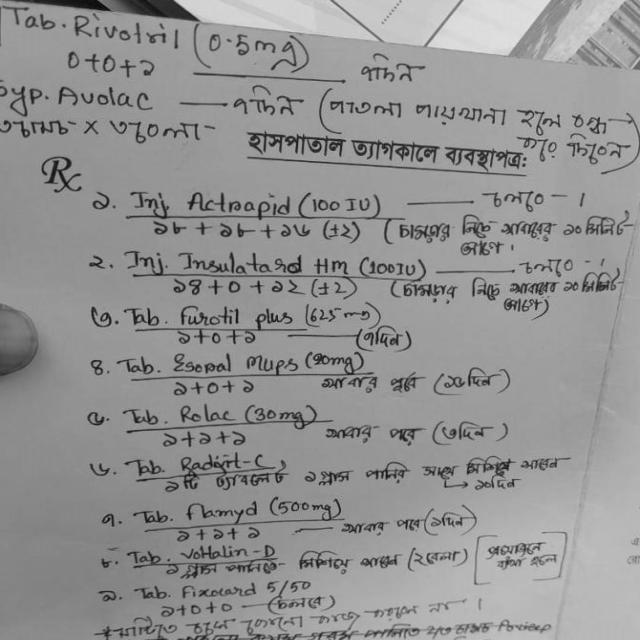 Tab. Rivotril (0.5mg)
০+০+১ ——— ৭দিন
Syp. Avolac —— ৭দিন (পাতলা পায়খানা হলে বন্ধ
৩চামচ × ৩বেলা
হাসপাতাল ত্যাগকালে ব্যবস্থাপত্র:
Rx
১. Inj. Actrapid (100 IU) —— চলবে - ।
১৮ + ১৮ + ১৬ (±2) (চামড়ার নিচে খাবারের ১০ মিনিট
আগে।
২. Inj. Insulatard HM (100IU) —— চলবে - ।
১৪ + ০ + ১২ (±2) (চামড়ার নিচে খাবারের ১০ মিনিট
আগে)
৩. Tab. Furotil plus (625 mg)
১+০+১ —— (৭দিন)
৪. Tab. Esopal Mups (20mg)
১+০+১ খাবার পূর্বে (১৫দিন)
৫. Tab. Rolac (30mg)
১+১+১ খাবার পরে (৩দিন)
৬. Tab. Radivit-C,
১টি ট্যাবলেট ১গ্লাস পানির সাথে মিশিয়ে খাবেন
→ ১০দিন
৭. Tab. Flamyd (500mg)
১+১+১ —— খাবার পরে
৮. Tab. Voltalin-D
১গ্লাস পানিতে মিশিয়ে খাবেন (২বেলা)
৯. Tab. Fixocard 5/50
১+০+০ —— (চলবে)